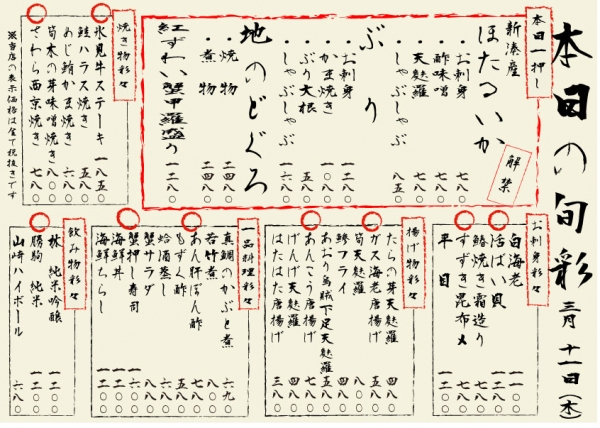 本日の旬彩 三月 十一日(木)
本日一押し
新湊産
ほたるいか
解禁
・お刺身 七八〇
・酢味噌 七八〇
・天麩羅 七八〇
・しゃぶしゃぶ 八五〇
ぶり
・お刺身
・かま焼き
・ぶり大根
・しゃぶしゃぶ
地のどぐろ
・焼物 二四八〇
・煮物 二四八〇
紅ずわい蟹甲羅盛り 一二八〇
焼き物彩々
氷見牛ステーキ 一八五〇
鮭ハラス焼き 五八〇
あじ鮪かま焼き 六八〇
筍木の芽味噌焼き 八八〇
さわら西京焼き 七八〇
※当店の表示価格は全て税抜きです
お刺身彩々
白海老
活ばい貝
鰆焼き霜造り
すずき昆布〆
平目
揚げ物彩々
たらの芽天麩羅 四八〇
ガス海老唐揚げ 五八〇
筍天麩羅 八八〇
鯵フライ 四八〇
あおり烏賊下足天麩羅 五八〇
あんこう唐揚げ 七八〇
げんげ天麩羅 四八〇
はたはた唐揚げ 四八〇
一品料理彩々
真鯛のかぶと煮
若竹煮
あん肝ぽん酢
もずく酢
蛤酒蒸し
蟹サラダ
蟹押し寿司
海鮮丼
海鮮ちらし
飲み物彩々
林 純米吟醸
勝駒 純米
山崎ハイボール 六八〇